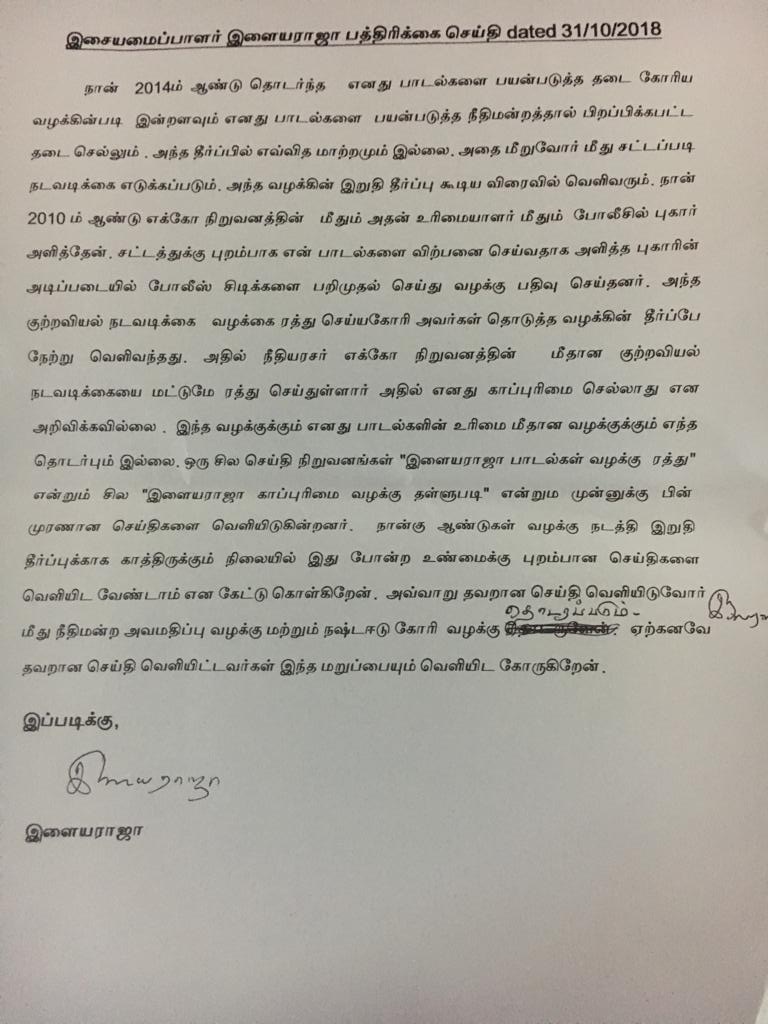 இசையமைப்பாளர் இளையராஜா பத்திரிக்கை செய்தி dated 31/10/2018
நான் 2014ம் ஆண்டு தொடர்ந்த எனது பாடல்களை பயன்படுத்த தடை கோரிய
வழக்கின்படி இன்றளவும் எனது பாடல்களை பயன்படுத்த நீதிமன்றத்தால் பிறப்பிக்கபட்ட
தடை செல்லும் . அந்த தீர்ப்பில் எவ்வித மாற்றமும் இல்லை. அதை மீறுவோர் மீது சட்டப்படி
நடவடிக்கை எடுக்கப்படும். அந்த வழக்கின் இறுதி தீர்ப்பு கூடிய விரைவில் வெளிவரும். நான்
2010 ம் ஆண்டு எக்கோ நிறுவனத்தின் மீதும் அதன் உரிமையாளர் மீதும் போலீசில் புகார்
அளித்தேன். சட்டத்துக்கு புறம்பாக என் பாடல்களை விற்பனை செய்வதாக அளித்த புகாரின்
அடிப்படையில் போலீஸ் சிடிக்களை பறிமுதல் செய்து வழக்கு பதிவு செய்தனர். அந்த
குற்றவியல் நடவடிக்கை வழக்கை ரத்து செய்யகோரி அவர்கள் தொடுத்த வழக்கின் தீர்ப்பே
நேற்று வெளிவந்தது. அதில் நீதியரசர் எக்கோ நிறுவனத்தின் மீதான குற்றவியல்
நடவடிக்கையை மட்டுமே ரத்து செய்துள்ளார் அதில் எனது காப்புரிமை செல்லாது என
அறிவிக்கவில்லை . இந்த வழக்குக்கும் எனது பாடல்களின் உரிமை மீதான வழக்குக்கும் எந்த
தொடர்பும் இல்லை. ஒரு சில செய்தி நிறுவனங்கள் "இளையராஜா பாடல்கள் வழக்கு ரத்து"
என்றும் சில "இளையராஜா காப்புரிமை வழக்கு தள்ளுபடி" என்றும முன்னுக்கு பின்
முரணான செய்திகளை வெளியிடுகின்றனர். நான்கு ஆண்டுகள் வழக்கு நடத்தி இறுதி
தீர்ப்புக்காக காத்திருக்கும் நிலையில் இது போன்ற உண்மைக்கு புறம்பான செய்திகளை
வெளியிட வேண்டாம் என கேட்டு கொள்கிறேன். அவ்வாறு தவறான செய்தி வெளியிடுவோர்
தொடரப்படும்.
மீது நீதிமன்ற அவமதிப்பு வழக்கு மற்றும் நஷ்டஈடு கோரி வழக்கு ஏற்கனவே
தவறான செய்தி வெளியிட்டவர்கள் இந்த மறுப்பையும் வெளியிட கோருகிறேன்.
இப்படிக்கு,
இளையராஜா
இளையராஜா